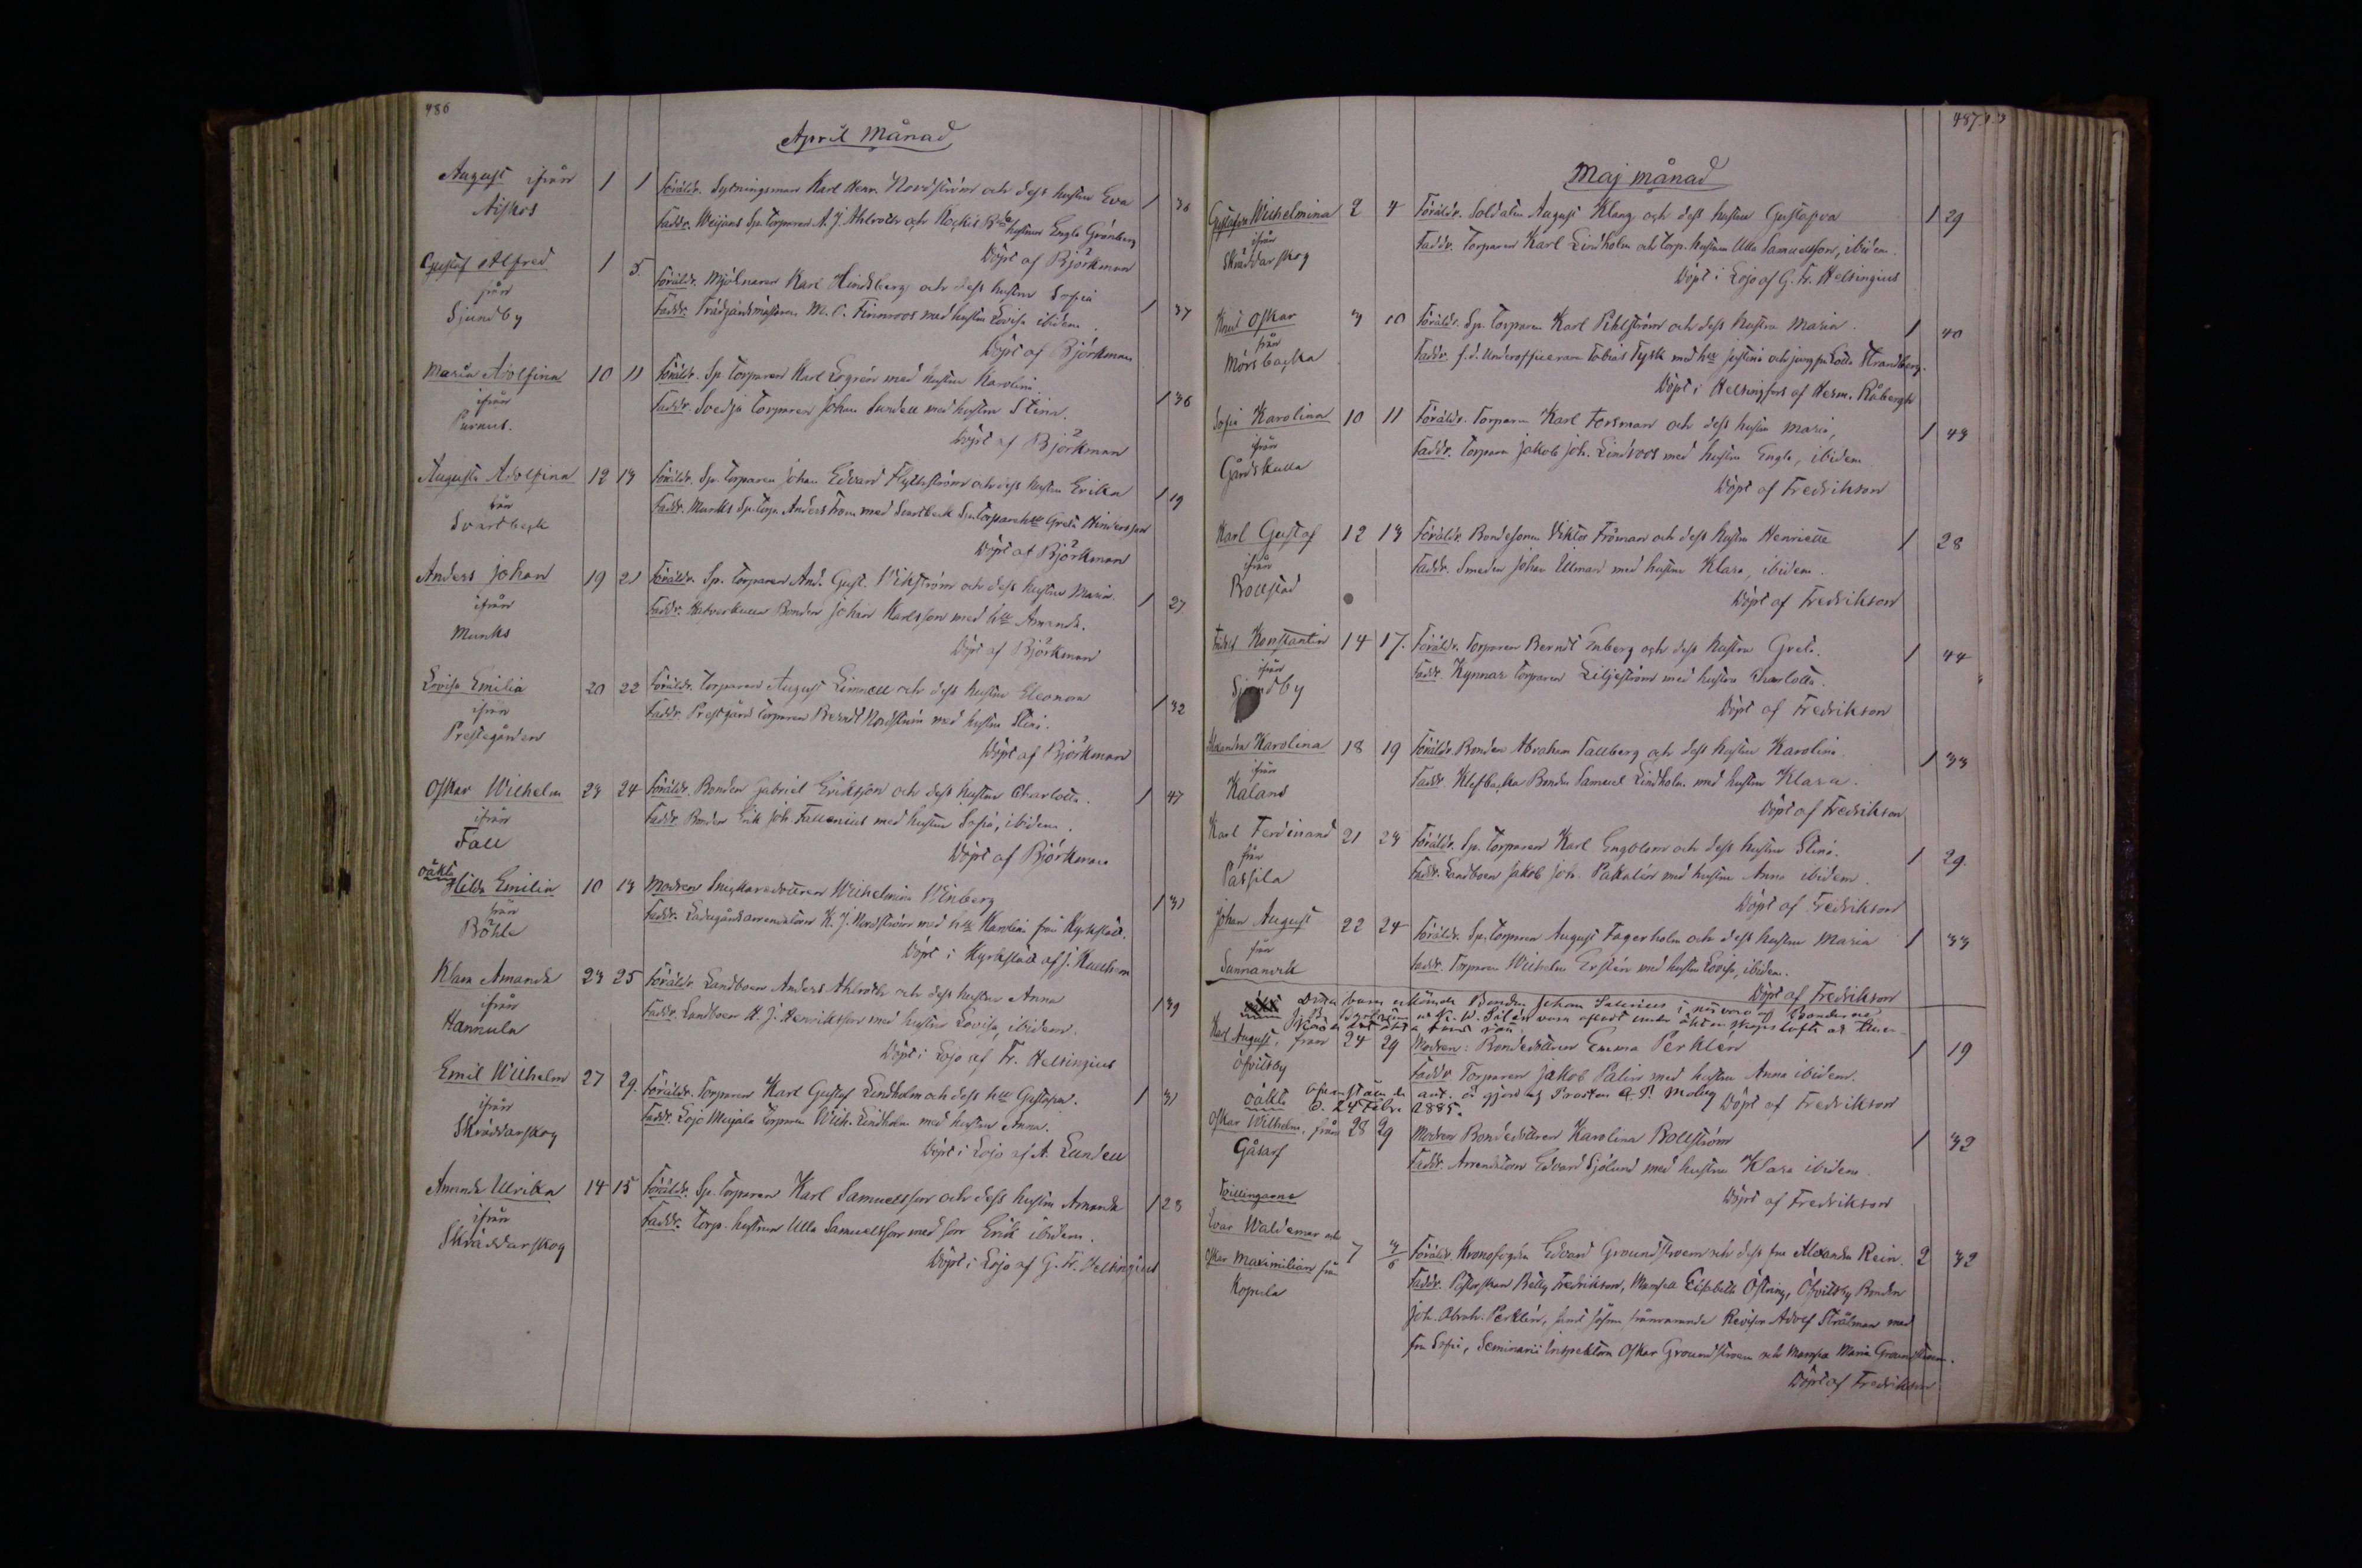 486
April Månad
August ifrån 1 1 Föräldr. Sytningsman Karl Henr. Nordström och dess hustru Eva 1 36
Aiskos Faddr. Weijans Sp. Torparen A. J. Ahlroth och hustrun Engla Grönberg
Döpt af Björkman
Gustaf Alfred 1 5. Föräldr. Mjölnaren Karl Lindberg och dess hustru Sofia 1 37
från Faddr. Trädgårdsmästaren M. C. Finnroos med hustru Lovisa ibidem.
Sjundby Döpt af Björkman
Maria Adolfina 10 11 Föräldr. Sp. Torparen Karl Logrén med hustru Karolina 1 36
ifrån Faddr. Svedja Torparen Johan Sundell med hustru Stina.
Purnus. Döpt af Björkman
Augusta Adolfina 12 13 Föräldr. Sp. Torparen Johan Edvard Flythström och dess hustru Erika 1 19
från Faddr. Munks Sp. Torp. Anders Trom med Svartbeck Sp. Torpare h:u Greta Hindersson
Svartbeck Döpt af Björkman
Anders Johan 19 21 Föräldr. Sp. Torparen And. Gust. Vikström och dess hustru Maria. 1 27
ifrån Faddr. Bonden Johan Karlsson med h:u Amanda.
Munks Döpt af Björkman
Lovisa Emilia 20 22 Föräldr. Torparen August Linnell och dess hustru Eleonora 1 32
ifrån Faddr. Prestgård Torparen Berndt Nordström med hustru Stina.
Prestegården Döpt af Björkman
Oskar Wilhelm 23 24 Föräldr. Bonden Gabriel Eriksson och dess hustru Charlotta. 1 47
ifrån Faddr. Bonden Erik Joh. Fallenius med hustru Sofia, ibidem.
Fall Döpt af Björkman
oäkta
Hilda Emilia 10 13 Modren Snickaredottren Wilhelmina Winberg 1 31
från Faddr. Ladugårdsarrendatorn K. J. Nordström med h:u Karolina från Kyrkslätt.
Böhle Döpt i Kyrkslätt af J.
Klara Amanda 23 25 Föräldr. Landboen Anders Ahlroth och dess hustru Anna 1 39
ifrån Faddr. Landboen H. J. Henriksson med hustru Lovisa, ibidem.
Hannula Döpt i Lojo af Fr. Helsingius
Emil Wilhelm 27 29. Föräldr. Torparen Karl Gustaf Lindholm och dess h:u Gustafva. 1 31
ifrån Faddr. Lojo Torparen Wilh. Lindholm med hustru Anna.
Skräddarskog Döpt i Lojo af A. Lundell
Amanda Ulrika 14 15 Föräldr. Sp. Torparen Karl Samuelsson och dess hustru Amanda 1 23
ifrån Faddr. Torp. hustrun Ulla Samuelsson med son Erik ibidem.
Skräddarskog Döpt i Lojo af G. Fr. Helsingius
487.
Maj månad
Gustafva Wilhelmina 2 4 Föräldr. Soldaten August Klang och dess hustru Gustafva 1 29
ifrån Faddr. Torparen Karl Lindholm och Torp. hustrun Ulla Samuelsson, ibidem.
Skräddarskog Döpt i Lojo af G. Fr. Helsingius
Knut Oskar 3 10 Föräldr. Sp. Torparen Karl Pihlström och dess hustru Maria. 1 40
från Faddr. f.d. Underofficeraren Tobias Tysk med h:u Justina och jungfru Lotta Strandberg.
Mörsbacka Döpt i Helsingfors af Herm. Råbergh
Sofia Karolina 10 11 Föräldr. Torparen Karl Forsman och dess hustru Maria, 1 43
ifrån Faddr. Torparen Jakob Joh. Lindroos med hustru Engla, ibidem
Gårdskulla Döpt af Fredrikson
Karl Gustaf 12 13 Föräldr. Bondesonen Viktor Fröman och dess hustru Henriette 1 28
ifrån Faddr. Smeden Johan Ulman med hustru Klara, ibidem.
Bollstad Döpt af Fredrikson
Fridolf Konstantin 14 17. Föräldr. Torparen Berndt Enberg och dess hustru Greta. 1 44
ifrån Faddr. Kynnar Torparen Liljeström med hustru Charlotta.
Sjundby Döpt af Fredrikson
Alexandra Karolina 18 19 Föräldr. Bonden Abraham Tallberg och dess hustru Karolina 1 33
ifrån Faddr. Klefbacka Bonden Samuel Lindholm med hustru Klara.
Kaland Döpt af Fredrikson
Karl Ferdinand 21 23 Föräldr. Sp. Torparen Karl Engblom och dess hustru Stina. 1 29.
från Faddr. Landboen Jakob Joh. Pakalén med hustru Anna ibidem
Passila Döpt af Fredrikson
Johan August 22 24 Föräldr. Sp. Torparen August Fagerholm och dess hustru Maria 1 33
från Faddr. Torparen Wilhelm Ersten med hustru Lovisa, ibidem.
Sunnanvik Döpt af Fredrikson
Detta barn erkände Bonden Johan i närvaro af bönderne
Karl August, från 24 29 Modren: Bondedottren Emma Perklén 1 19
Öfvitsby Faddr. Torparen Jakob Palin med hustru Anna ibidem.
Ofvanstående ant. är gjord af Prosten A. P. Moliis
d. 24 Febr. 1885. Döpt af Fredrikson
oäkta
Oskar Wilhelm, från 28 29 Modren Bondedottren Karolina Bollström 1 32
Gåsarf Faddr. Arrendatorn Edvard Sjölund med hustru Klara ibidem
Döpt af Fredrikson
Tvillingarne
Ivar Waldemar och
Oskar Maximilian från 7 3/6 Föräldr. Kronofogden Edvard Groundstroem och dess fru Alexandra Rein. 2 32
Kopula Faddr. Pastorskan Betty Fredrikson, Mamsell Elisabeth Östring, Öfvitsby Bonden
Joh. Abrah. Perklén, samt såsom frånvarande Revisor Adolf Strålman med
fru Sofia, Seminarii Inspektorn Oskar Groundstroem och Mamsell Maria Groundstroem.
Döpt af Fredrikson